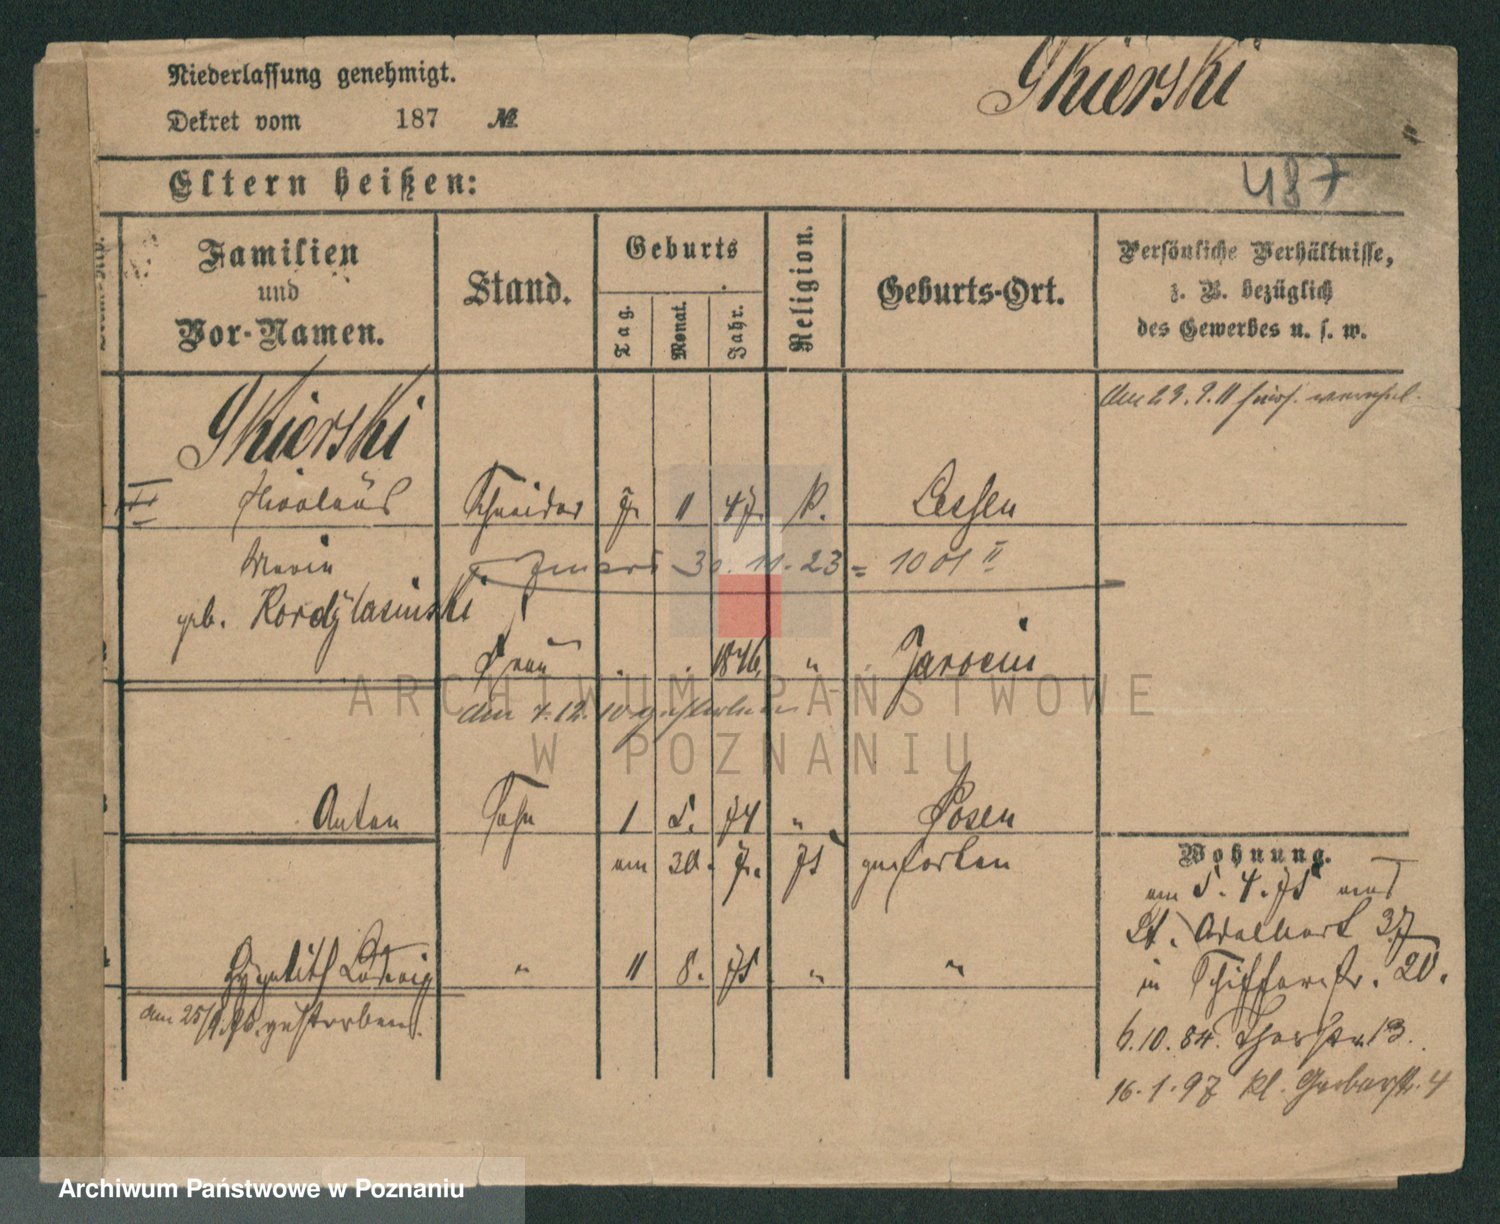 Niederlassung genehmigt.
Dekret vom 187 №
Skierski
487
Eltern heißen:
Familien und Vor-Namen.
Stand.
Geburts
Tag.
Monat.
Jahr.
Religion.
Geburts-Ort.
Persönliche Verhältnisse, z. B. bezüglich des Gewerbes u. s. w.
Skierski
II Nicolaus Schneider 7. 11 47. k. Lessen
Maria
30.11.23 = 1001 II
geb. Kordylasinski
2 Frau . . 1846. " Jarocin
am 4.12.10 gestorben
3 Anton Sohn 1 5. 74 " Posen
am 30. 7. 75 gestorben
4 Ludwig " 11 8. 75 " "
am 25/9.76. gestorben.
Wohnung.
am 5. 4. 75 aus
St. Adalbert 37
in Schifferstr. 20.
6.10.84. Thorstr. 13.
16.1.97 kl. Gerberstr. 4
ARCHIWUM PAŃSTWOWE
W POZNANIU
Archiwum Państwowe w Poznaniu